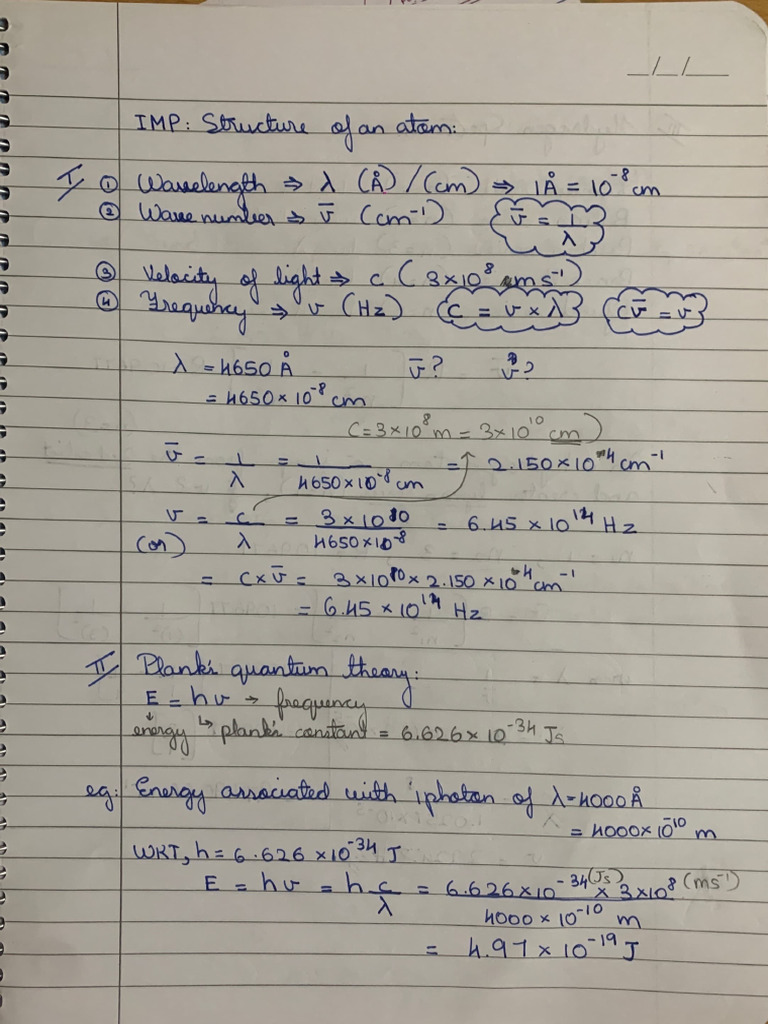 _/_/__
IMP: Structure of an atom:
I ① Wavelength ⇒ λ (Å) / (cm) ⇒ 1Å = 10⁻⁸ cm
② Wave number ⇒ v̅ (cm⁻¹) v̅ = 1/λ
③ Velocity of light ⇒ c (3×10⁸ ms⁻¹)
④ Frequency ⇒ v (Hz) C = v × λ cv̅ = v
λ = 4650 Å v̅? v?
= 4650 × 10⁻⁸ cm
C = 3×10⁸ m = 3×10¹⁰ cm)
v̅ = 1/λ = 1/4650×10⁻⁸ cm = 2.150×10⁻⁴ cm⁻¹
v = c/λ = 3×10¹⁰/4650×10⁻⁸ = 6.45 × 10¹⁴ Hz
(or)
= C×v̅ = 3×10¹⁰ × 2.150 ×10⁻⁴ cm⁻¹
= 6.45 × 10¹⁴ Hz
II Plank's quantum theory:
E = hv → frequency
energy ↳ plank's constant = 6.626×10⁻³⁴ Js
eg: Energy associated with 1photon of λ=4000Å
= 4000×10⁻¹⁰ m
WKT, h = 6.626 ×10⁻³⁴ J
E = hv = h c/λ = 6.626×10⁻³⁴ (Js) × 3×10⁸ (ms⁻¹)/4000 × 10⁻¹⁰ m
= 4.97 × 10⁻¹⁹ J